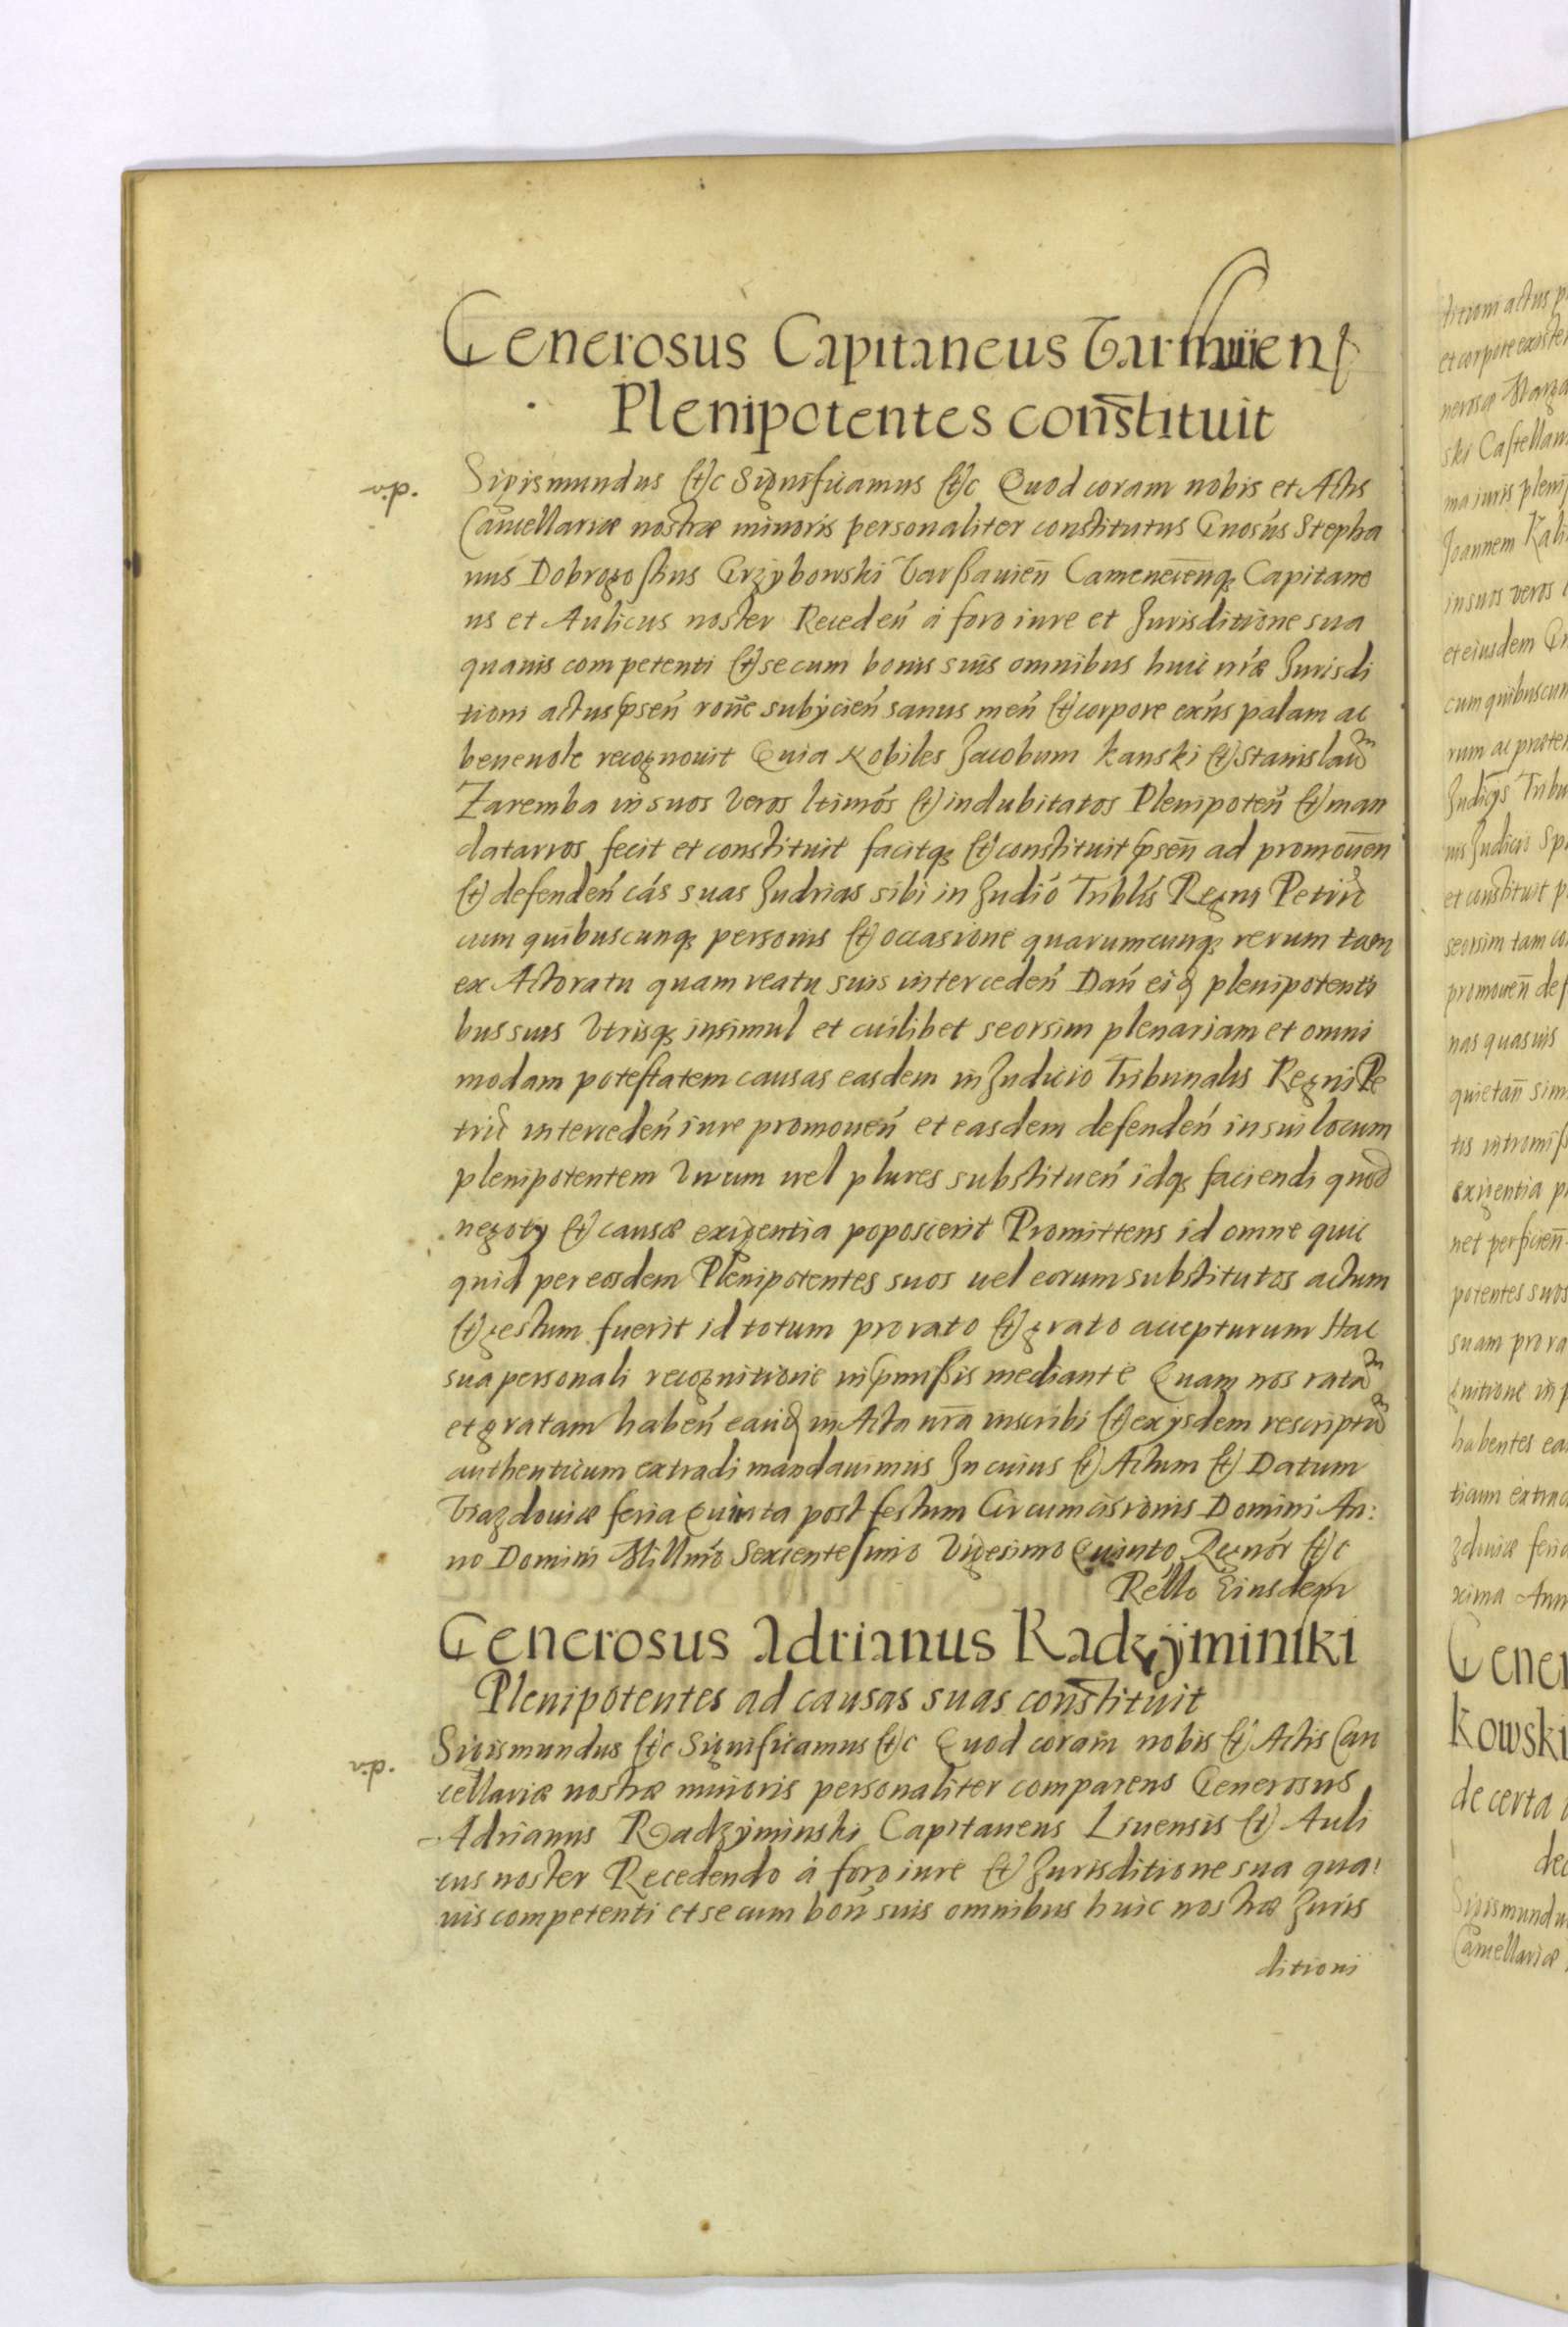 Generosus Capitaneus
Plenipotentes constituit
Sigismundus etc Significamus etc Quod coram nobis et Actis
Cancellariæ nostræ minoris personaliter constitutus Gnosus Stepha
nus Dobrogostius Grzybowski Varßauien Camenecenq Capitane
us et Aulicus noster Receden á foro iure et Jurisditione sua
quauis competenti et se cum bonis suis omnibus huic nræ Jurisdi
tioni actus psen rone subÿcien sanus men et corpore exns palam ac
beneuole recognouit Quia Nobiles Jacobum Kanski et Stanislaum
Zaremba in suos veros ltimos et indubitatos Plenipoten et man
datarios fecit et constituit facitq et constituit psen ad promouen
et defenden cás suas Judrias sibi in Judió Triblis Regni Petric
cum quibuscunq personis et occasione quarumcunq rerum tam
ex Actoratu quam reatu suis interceden Dan eisd plenipotenti
bus suis Vtrisq insimul et cuilibet seorsim plenariam et omni
modam potestatem causas easdem in Judicio Tribunalis Regni Pe
tric interceden iure promouen et easdem defenden in sui locum
plenipotentem Vnum uel plures substituen idq faciendi quod
negoty et causæ exigentia poposcerit Promittens id omne quic
quid per eosdem Plenipotentes suos uel eorum substitutos actum
et gestum fuerit id totum pro rato et grato accepturum Hac
sua personali recognitione in pmißis mediante Quam nos ratam
et gratam haben eand in Acta nra inscribi et ex ysdem rescriptum
authenticum extradi mandauimus In cuius et Actum et Datum
Viazdouiæ feria Quinta post festum Circumcisionis Domini An:
no Domini Millmo Sexcentesimo Vigesimo Quinto Regnor etc
Rello Eiusdem
Generosus Adrianus Radzÿminski
Plenipotentes ad causas suas constituit
Sigismundus etc Significamus etc Quod coram nobis et Actis Can
cellariæ nostræ minoris personaliter comparens Generosus
Adrianus Radzÿminski Capitaneus Liuensis et Auli
cus noster Recedendo á foro iure et Jurisditione sua qua
uis competenti et se cum bon suis omnibus huic nostræ Juris
ditioni